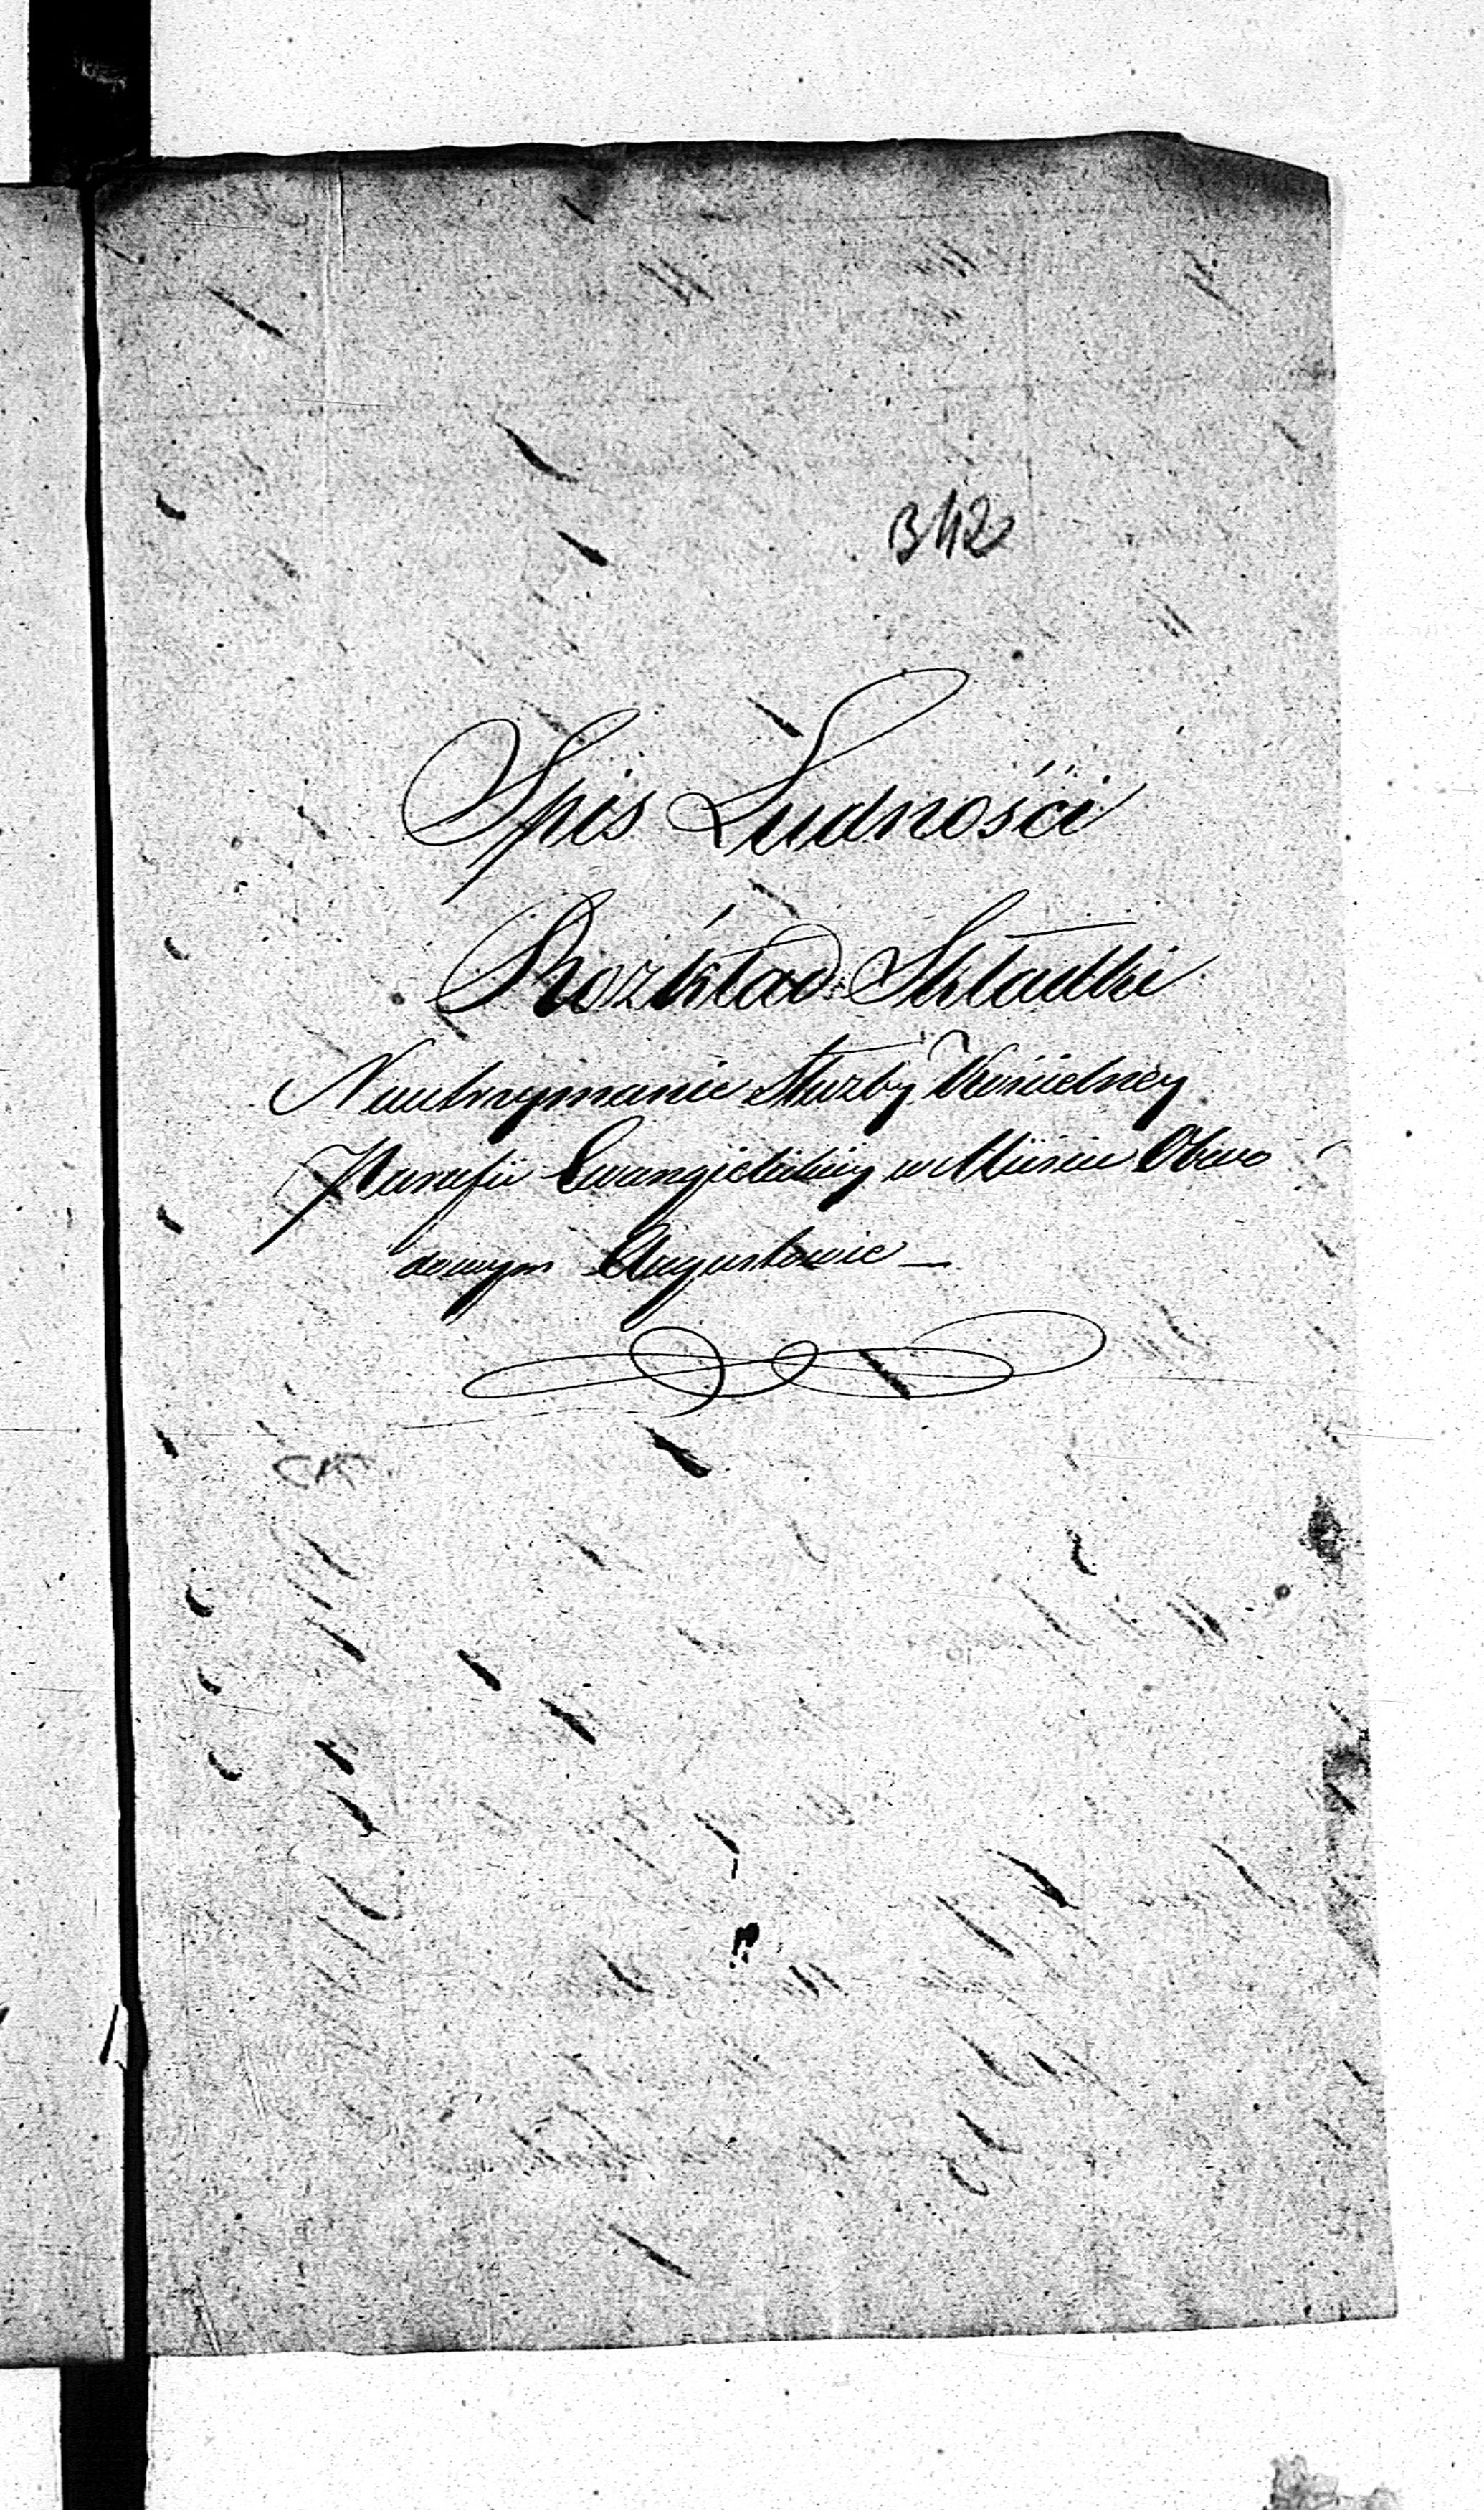 342
Spis Ludnośći
Rozkład Składki
Na utrzymanie Służby Kościelney
Parafii Ewangielickiey w Mieście Obwo
dowym Augustowie